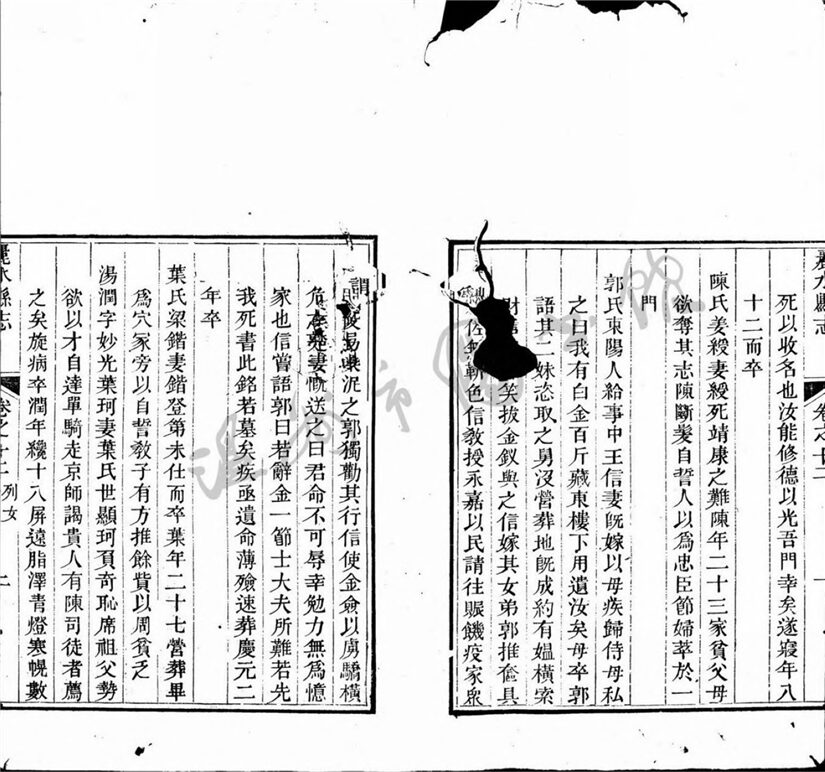 麗水縣志
卷之十二
一
死以收名也汝能修德以光吾門幸矣遂寢年八
十二而卒
陳氏姜綬妻綬死靖康之難陳年二十三家貧父母
欲奪其志陳斷髮自誓人以爲忠臣節婦萃於一
門
郭氏東陽人給事中王信妻旣嫁以母疾歸侍母私
之曰我有白金百斤藏東樓下用遺汝矣母卒郭
語其二妹恣取之舅沒營葬地旣成約有媼橫索
財 笑拔金釵與之信嫁其女弟郭推奩具
佐無靳色信敎授永嘉以民請往賑饑疫家衆
謂 沮之郭獨勸其行信使金僉以虜驕橫
危 妻慨送之曰君命不可辱幸勉力無爲憶
家也信嘗語郭曰若辭金一節士大夫所難若先
我死書此銘若墓矣疾亟遺命薄殮速葬慶元二
年卒
葉氏梁鍇妻鍇登第未仕而卒葉年二十七營葬畢
爲穴家旁以自誓敎子有方推餘貲以周貧乏
湯潤字妙光葉珂妻葉氏世顯珂頁奇恥席祖父勢
欲以才自達單騎走京師謁貴人有陳司徒者薦
之矣旋病卒潤年纔十八屏遠脂澤青燈寒幌數
麗水縣志
卷之十二 列女
二
溫州市圖書館